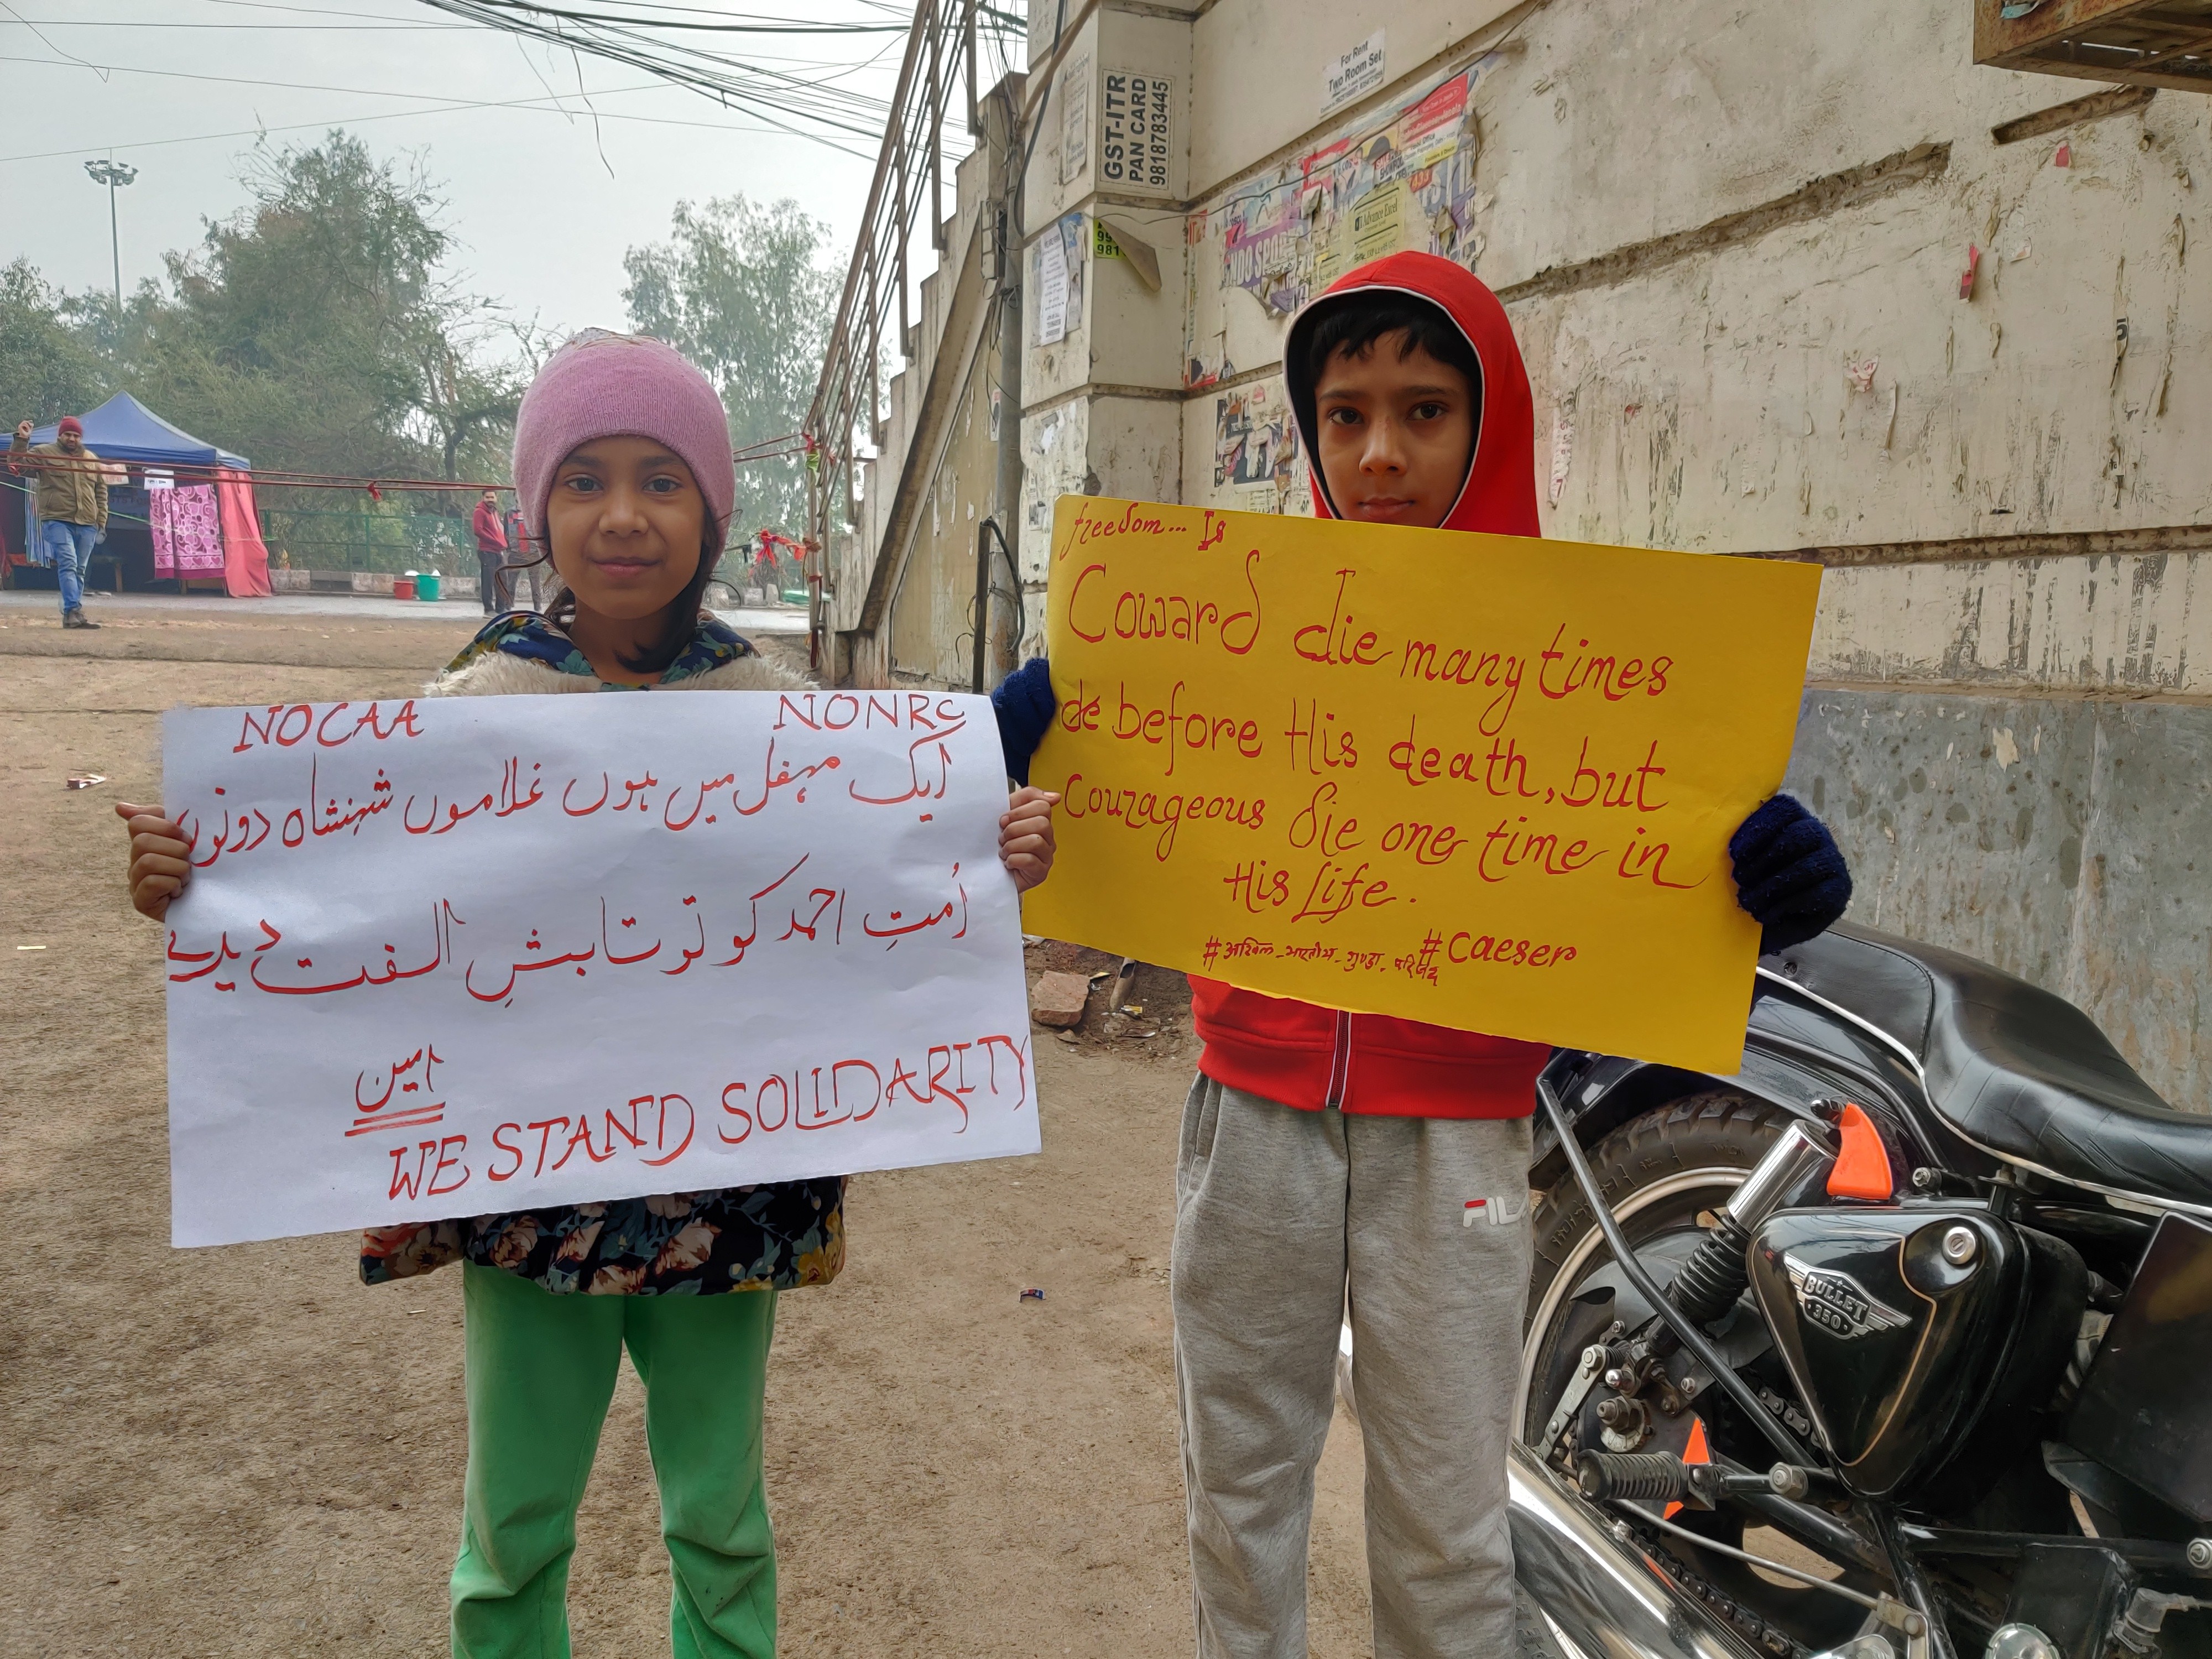 GST-ITR
PAN CARD
9818783445
For Rent
Two Room Set
Advance Excel
NOCAA NONRC
ایک مہفل میں ہوں غلاموں شہنشاہ دونوں
اُمتِ احمد کو تو تابشِ الفت دیدے
امین
WE STAND SOLIDARITY
freedom... Is
Coward die many times
de before His death, but
Courageous die one time in
His Life.
#अखिल_भारतीय_गुण्डा_परिषद #Caeser
FILA
BULLET
350